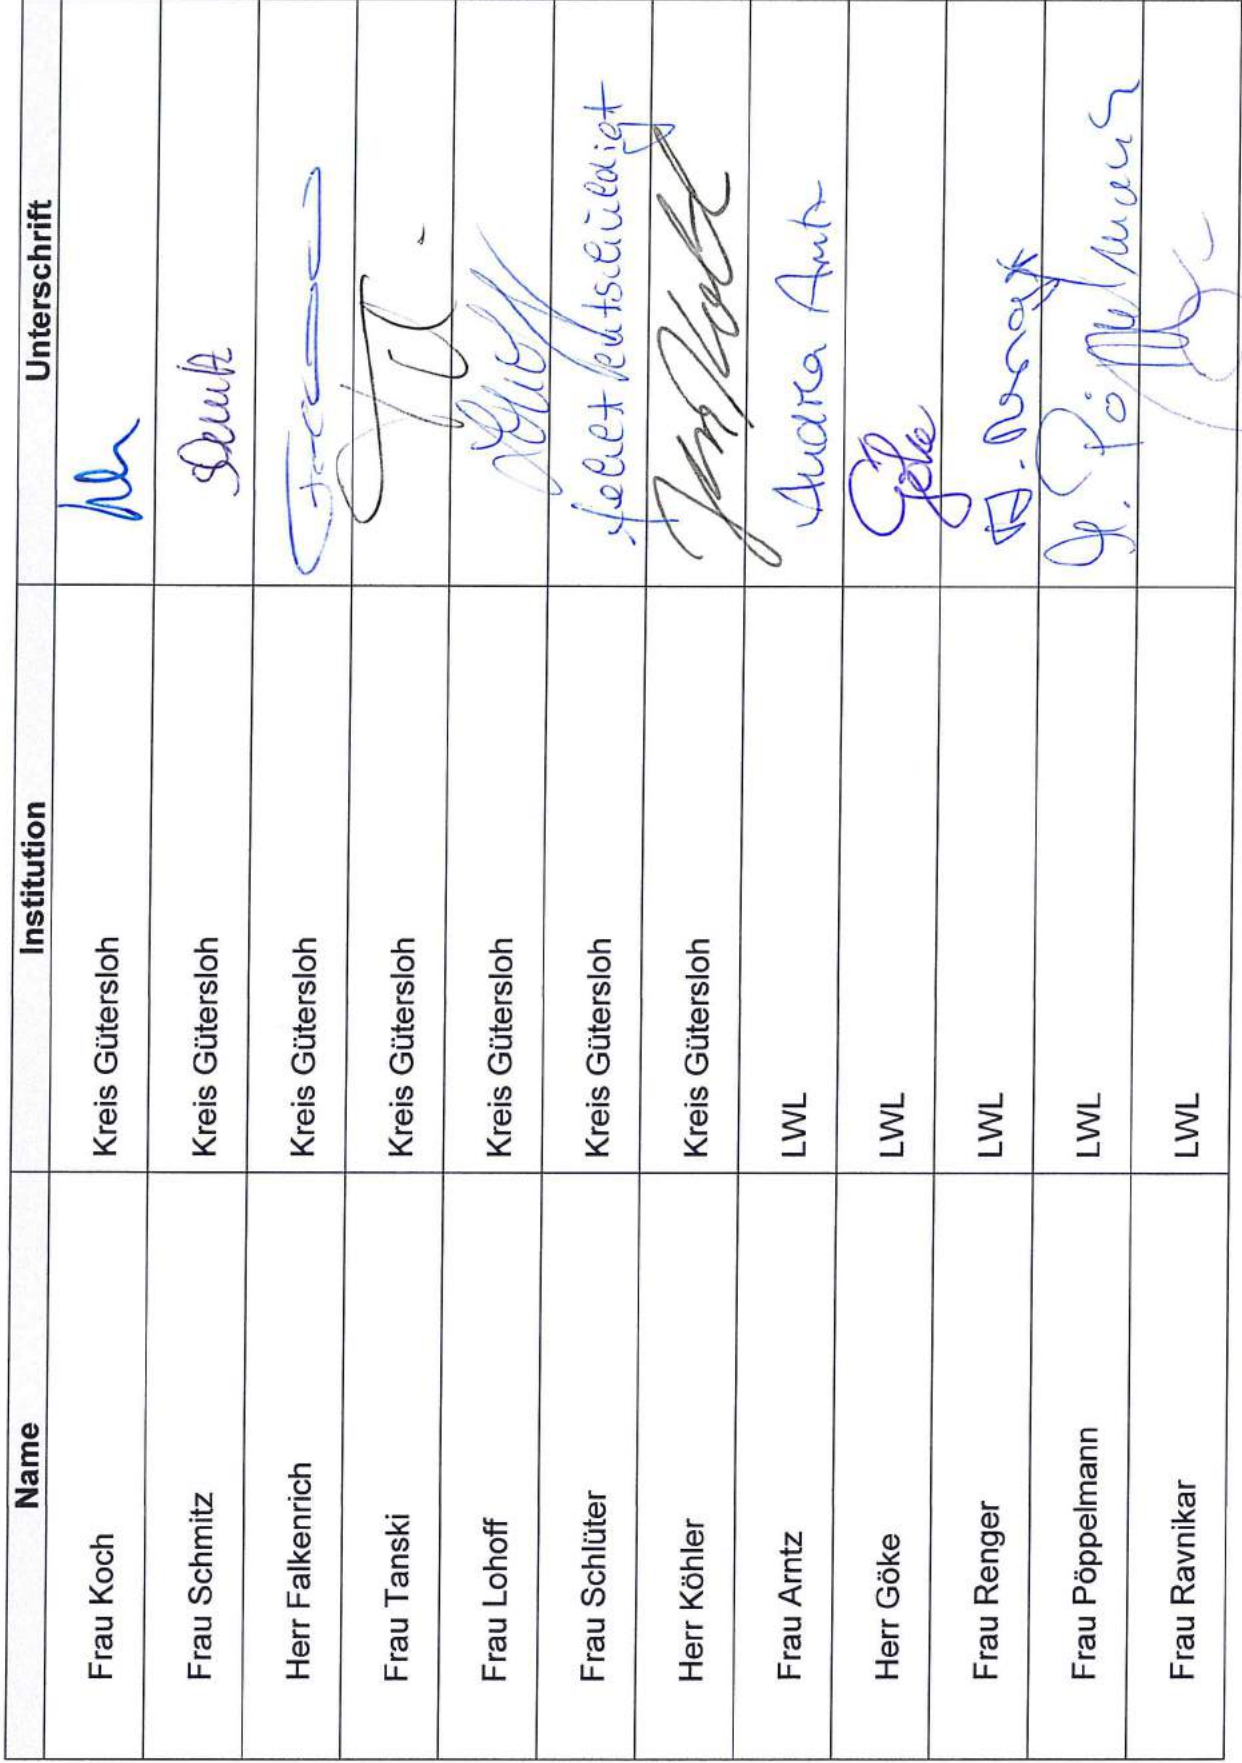 Name Institution Unterschrift
Frau Koch Kreis Gütersloh
Frau Schmitz Kreis Gütersloh
Herr Falkenrich Kreis Gütersloh
Frau Tanski Kreis Gütersloh
Frau Lohoff Kreis Gütersloh
Frau Schlüter Kreis Gütersloh fehlt entschuldigt
Herr Köhler Kreis Gütersloh
Frau Arntz LWL Andrea Arntz
Herr Göke LWL Göke
Frau Renger LWL
Frau Pöppelmann LWL Pöppelmann
Frau Ravnikar LWL